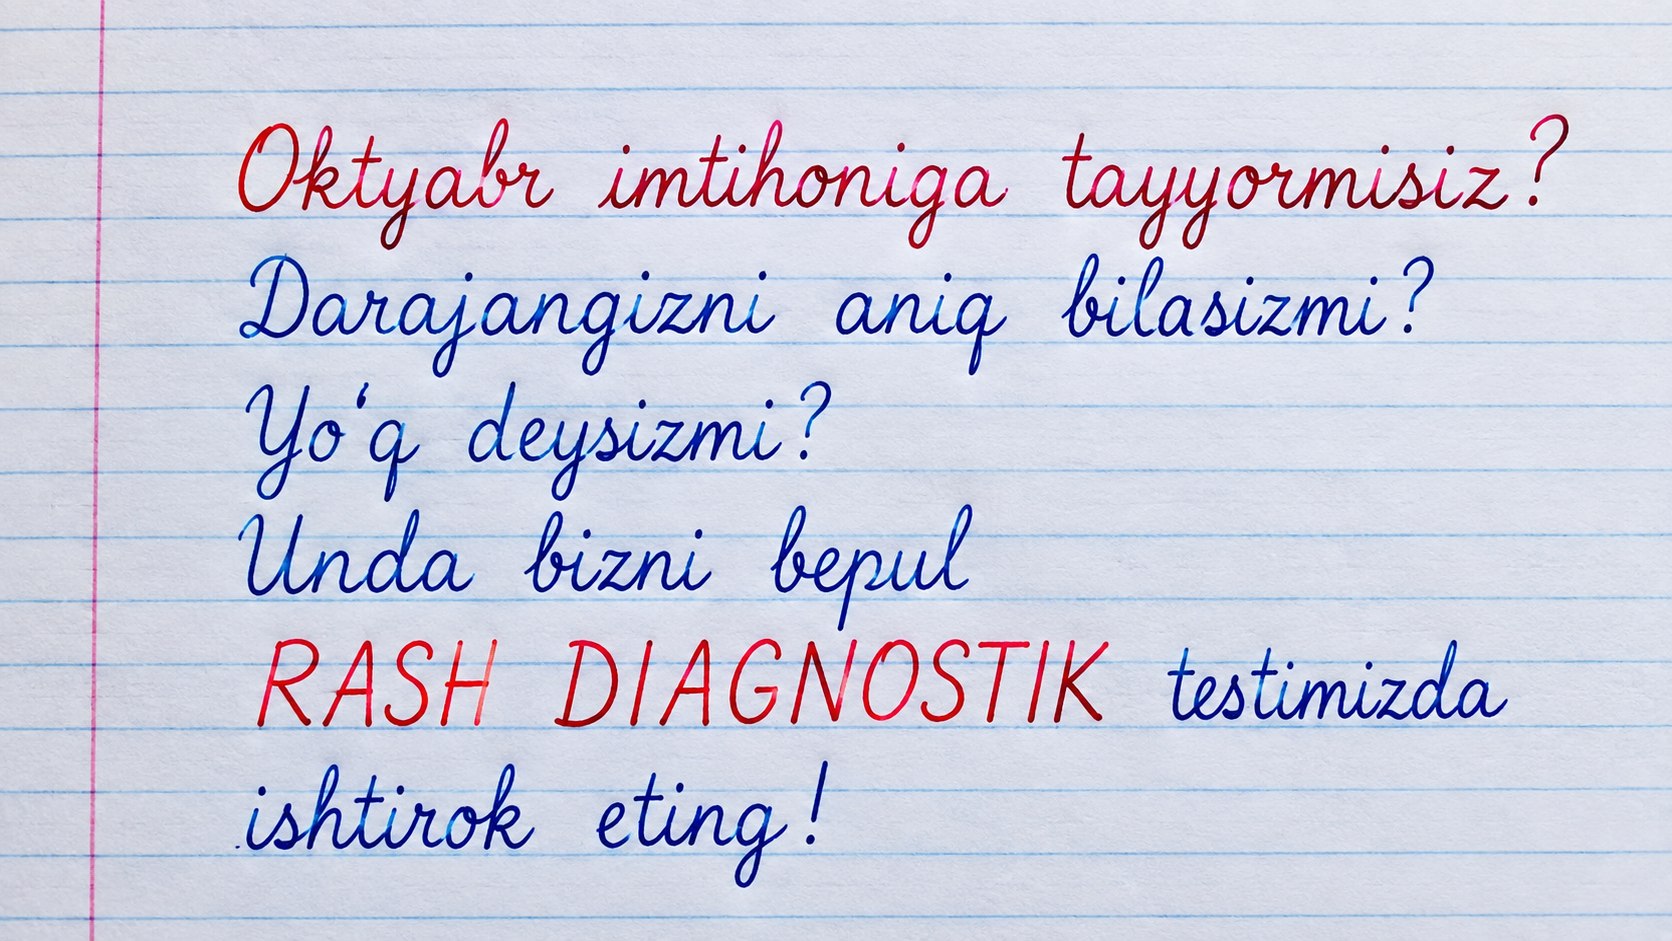 Oktyabr imtihoniga tayyormisiz?
Darajangizni aniq bilasizmi?
Yo‘q deysizmi?
Unda bizni bepul
RASH DIAGNOSTIK testimizda
ishtirok eting!